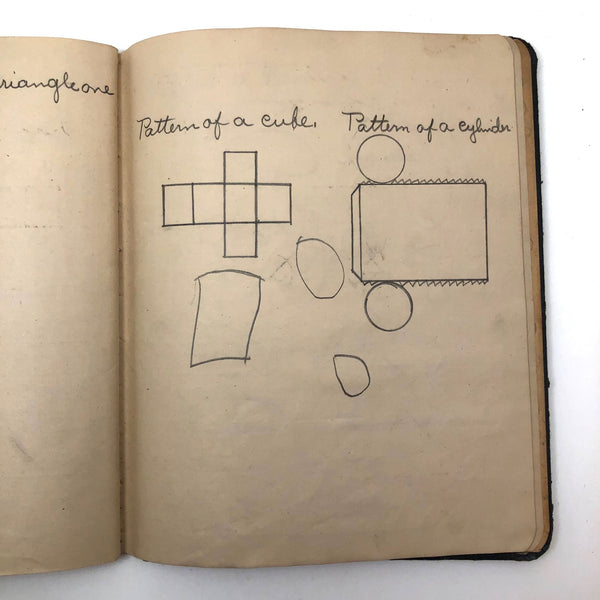 riangle one
Pattern of a cube.
Pattern of a cylinder